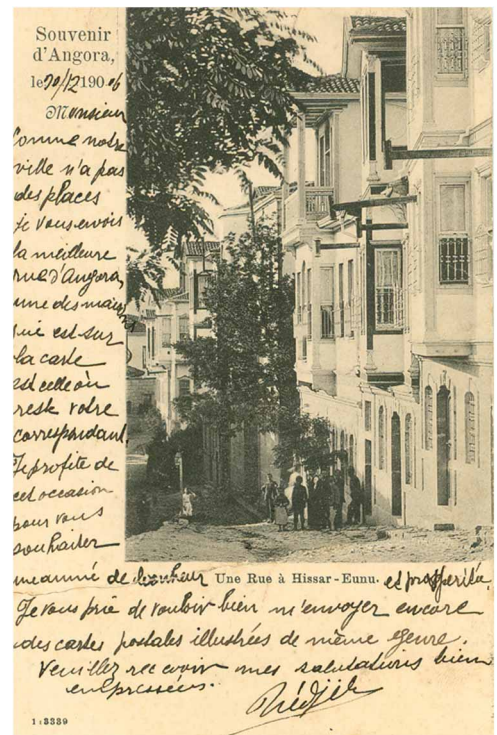 Souvenir
d'Angora,
le 20/12 1906
Monsieur
Comme notre
ville n'a pas
des places
je vous envois
la meilleure
rue d'Angora,
une des maisons
qui est sur
la carte
est celle où
reste votre
correspondant.
Je profite de
cet occasion
pour vous
souhaiter
une année de bonheur Une Rue à Hissar-Eunu. et prospérité.
Je vous prie de vouloir bien m'envoyer encore
des cartes postales illustrées de même genre.
Veuillez recevoir mes salutations bien
empressées.
1:3339